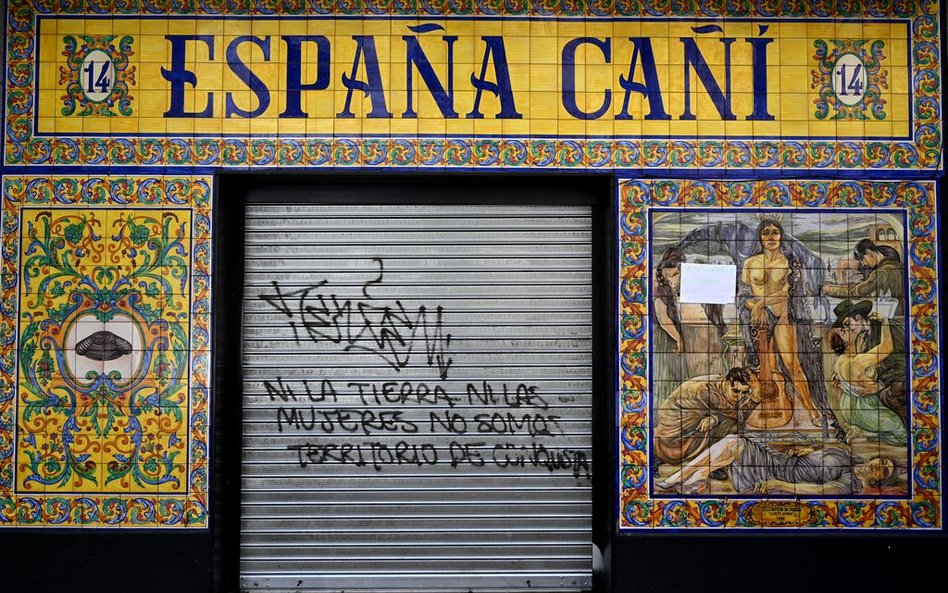 14 ESPAÑA CAÑÍ 14
NI LA TIERRA NI LAS
MUJERES NO SOMOS
TERRITORIO DE CONQUISTA